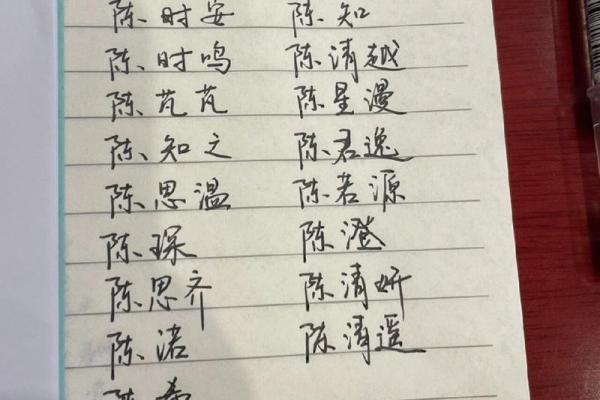 陈时安 陈知
陈时鸣 陈清越
陈芃芃 陈星漫
陈知之 陈君逸
陈思温 陈若源
陈琛 陈澄
陈思齐 陈清妍
陈诺 陈清遥
陈